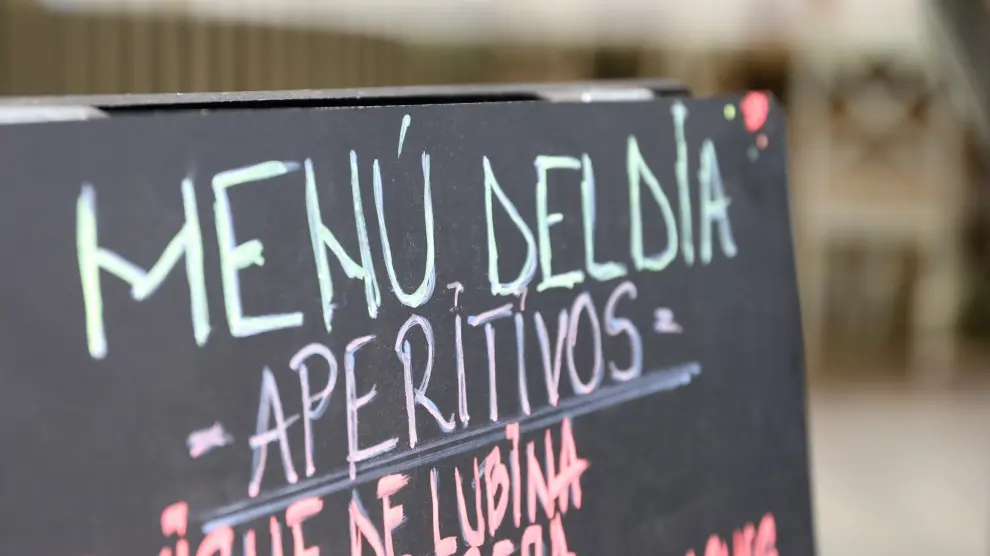 MENÚ DEL DÍA
- APERITIVOS -
DE LUBINA